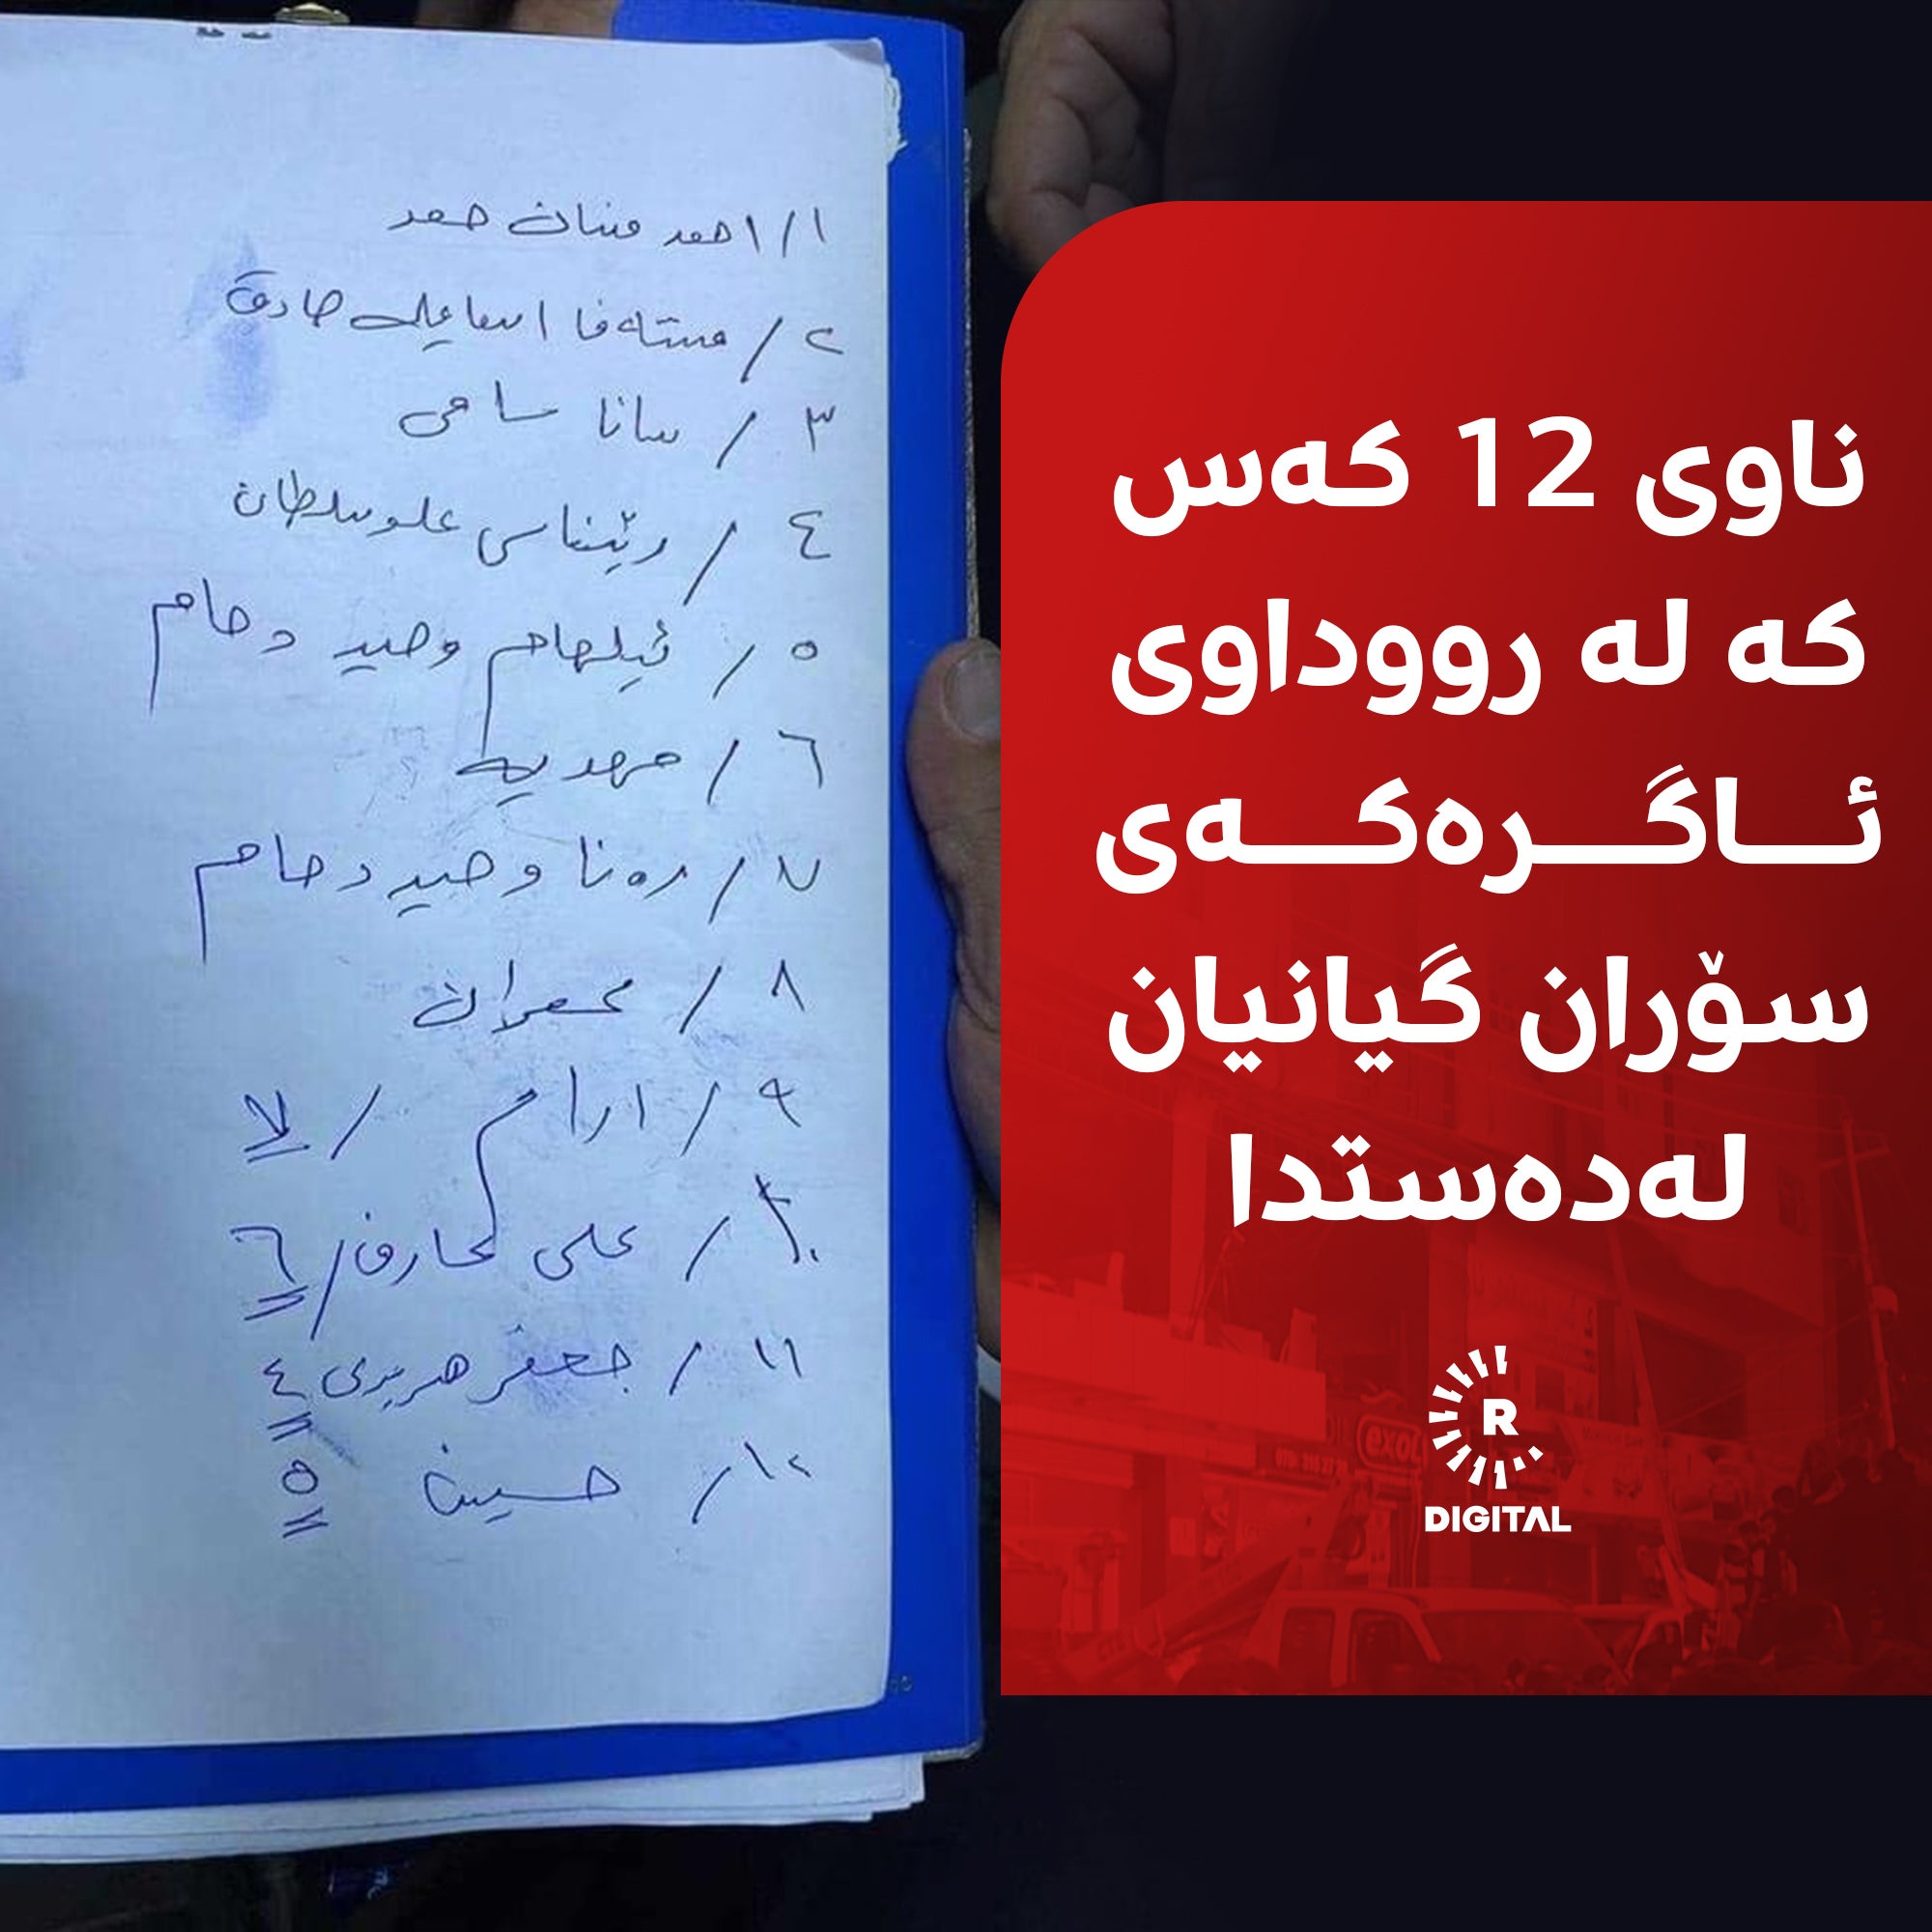 ١/ احمد حمد
٢/ مستەفا اسماعیل صادق
٣/ سانا سامی
٤/ ڕێناس علو سلطان
٥/ ئیلهام وحید
٦/ مهدیە
٧/ رەنا وحید
٨/
٩/ ارام / ٧
١٠/ علی عارف / ٦
١١/ جعفر هریری ٤
١٢/ حسین ٥
ناوی 12 کەس
کە لە رووداوی
ئـــاگـــرەکـــەی
سۆران گیانیان
لەدەستدا
R
DIGITAL